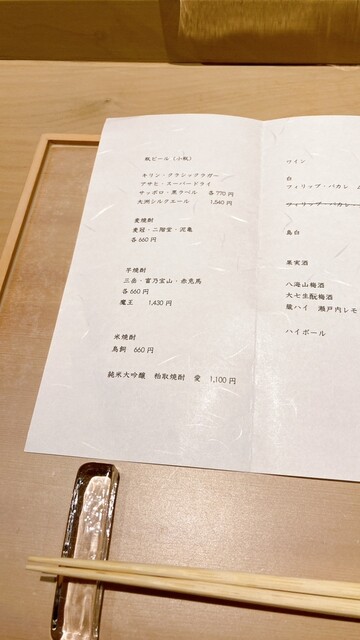 瓶ビール（小瓶）
キリン・クラシックラガー
アサヒ・スーパードライ
サッポロ・黒ラベル　各770円
大洲シルクエール　1,540円
麦焼酎
麦冠・二階堂・泥亀
各660円
芋焼酎
三岳・富乃宝山・赤兎馬
各660円
魔王　1,430円
米焼酎
鳥飼　660円
純米大吟醸　粕取焼酎　愛　1,100円
ワイン
白
フィリップ・パカレ
フィリップ・パカレ
果実酒
八海山梅酒
大七生酛梅酒
蔵ハイ　瀬戸内レモ
ハイボール